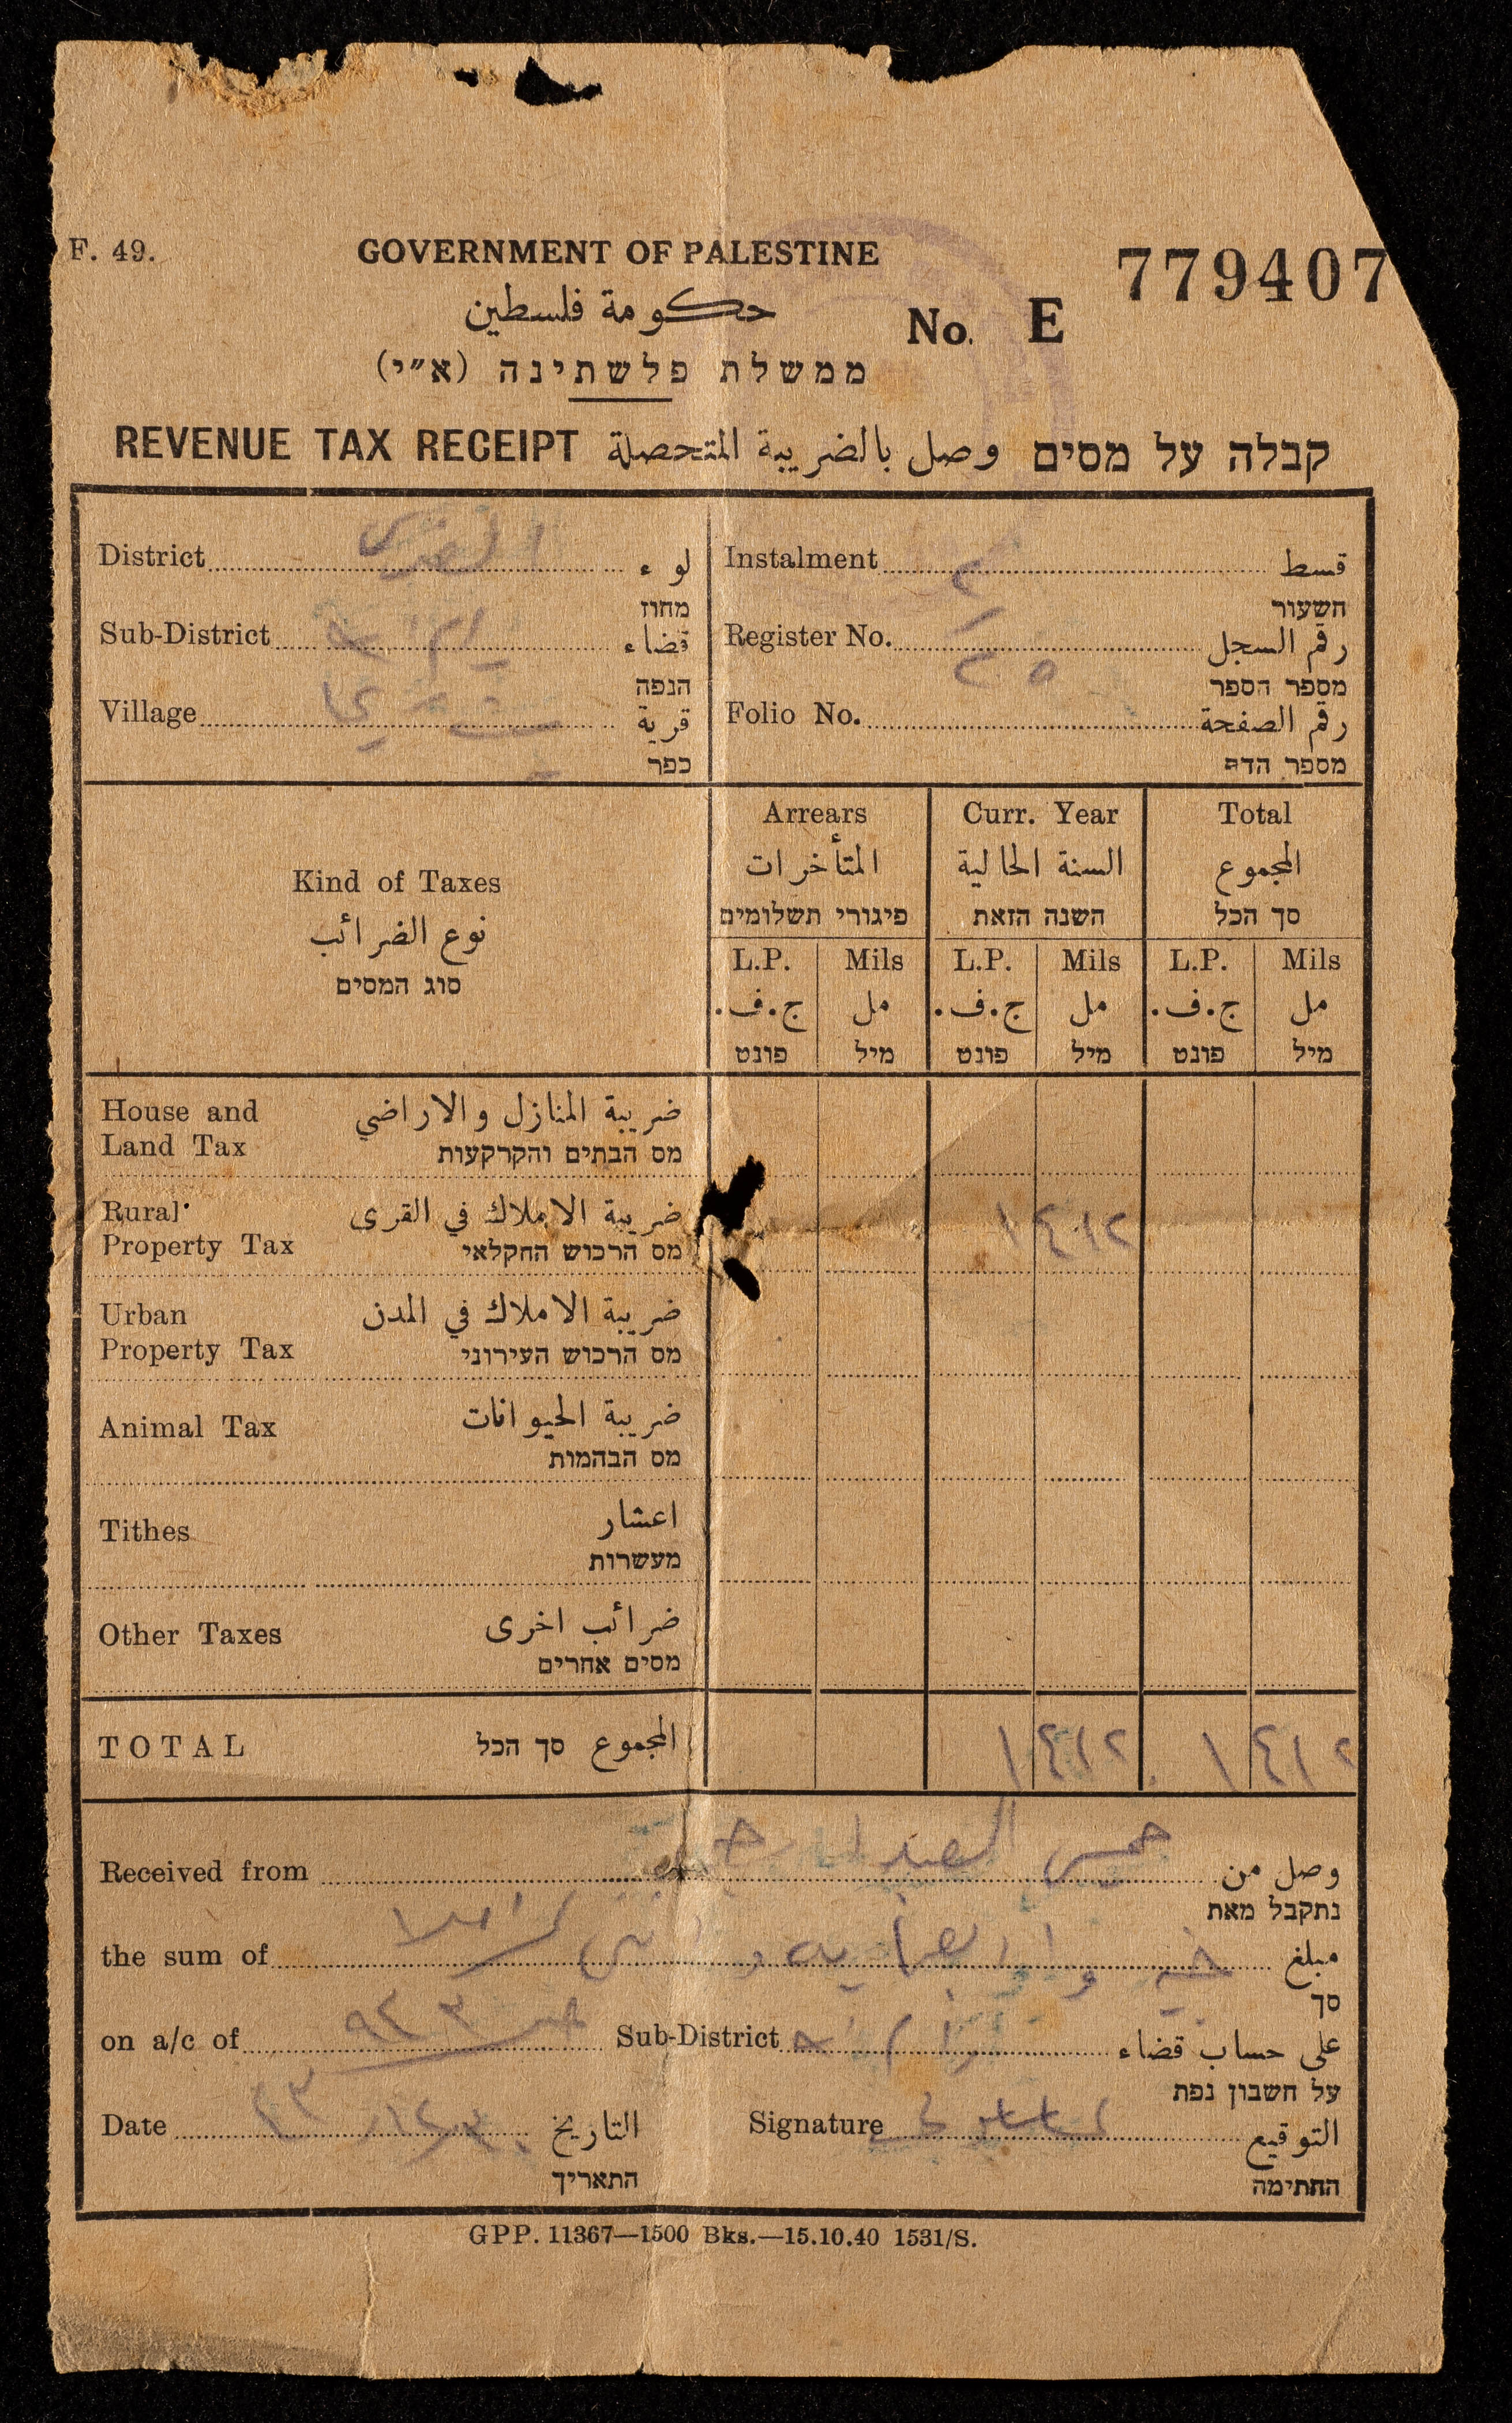 F. 49.
GOVERNMENT OF PALESTINE
779407
حكومة فلسطين
No. E
ממשלת פלשתינה (א״י)
REVENUE TAX RECEIPT وصل بالضريبة المتحصلة קבלה על מסים
District لواء
מחוז
Instalment ٢ قسط
תשעור
Sub-District قضاء
הנפה
Register No. رقم السجل
מספר הספר
Village قرية
כפר
Folio No. رقم الصفحة
מספר הדף
Kind of Taxes
نوع الضرائب
סוג המסים
Arrears Curr. Year Total
المتأخرات السنة الحالية المجموع
פיגורי תשלומים השנה הזאת סך הכל
L.P. Mils L.P. Mils L.P. Mils
ج.ف. مل ج.ف. مل ج.ف. مل
פונט מיל פונט מיל פונט מיל
House and ضريبة المنازل والاراضي
Land Tax מס הבתים והקרקעות
Rural ضريبة الاملاك في القرى ١ ٤١٢
Property Tax מס הרכוש החקלאי
Urban ضريبة الاملاك في المدن
Property Tax מס הרכוש העירוני
Animal Tax ضريبة الحيوانات
מס הבהמות
Tithes اعشار
מעשרות
Other Taxes ضرائب اخرى
מסים אחרים
TOTAL المجموع סך הכל ١ ٤١٢ ١ ٤١٢
Received from وصل من
נתקבל מאת
the sum of مبلغ
סך
on a/c of Sub-District على حساب قضاء
על חשבון נפת
Date التاريخ
התאריך
Signature التوقيع
החתימה
GPP. 11367—1500 Bks.—15.10.40 1531/S.